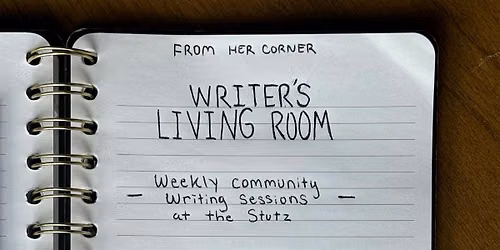 FROM HER CORNER
WRITER'S
LIVING ROOM
Weekly Community
— Writing Sessions —
at the Stutz